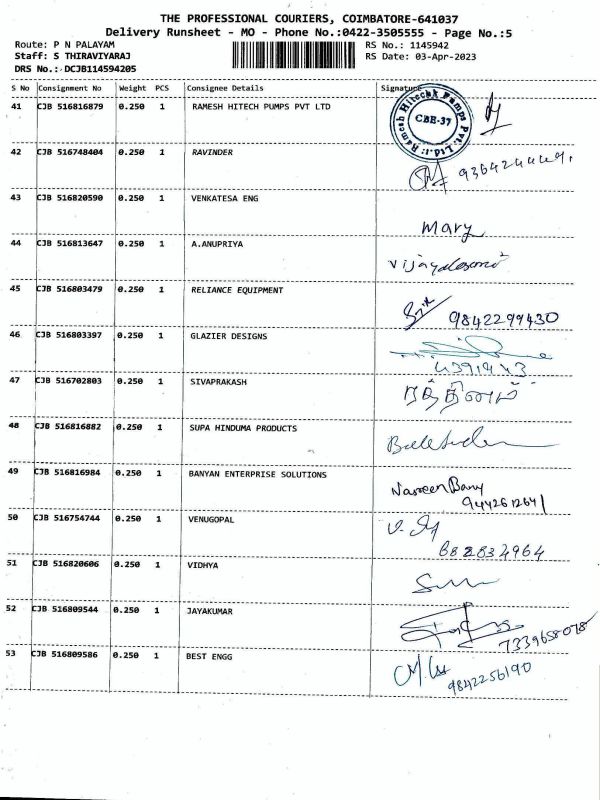 THE PROFESSIONAL COURIERS, COIMBATORE-641037
Delivery Runsheet - MO - Phone No.:0422-3505555 - Page No.:5
Route: P N PALAYAM RS No.: 1145942
Staff: S THIRAVIYARAJ RS Date: 03-Apr-2023
DRS No.: DCJB114594205
S No Consignment No Weight PCS Consignee Details Signature
41 CJB 516816879 0.250 1 RAMESH HITECH PUMPS PVT LTD
Ramesh Hitech Pumps Pvt. Ltd.
CBE-37
42 CJB 516748404 0.250 1 RAVINDER
43 CJB 516820590 0.250 1 VENKATESA ENG
Mary
44 CJB 516813647 0.250 1 A.ANUPRIYA
45 CJB 516803479 0.250 1 RELIANCE EQUIPMENT
9842299430
46 CJB 516803397 0.250 1 GLAZIER DESIGNS
47 CJB 516702803 0.250 1 SIVAPRAKASH
48 CJB 516816882 0.250 1 SUPA HINDUMA PRODUCTS
49 CJB 516816984 0.250 1 BANYAN ENTERPRISE SOLUTIONS
Nasreen Banu
9442612641
50 CJB 516754744 0.250 1 VENUGOPAL
51 CJB 516820606 0.250 1 VIDHYA
52 CJB 516809544 0.250 1 JAYAKUMAR
7339658078
53 CJB 516809586 0.250 1 BEST ENGG
9842256190